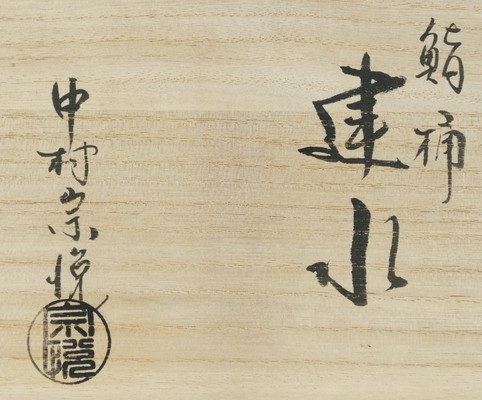 鮨桶
建水
中村宗悦
宗悦